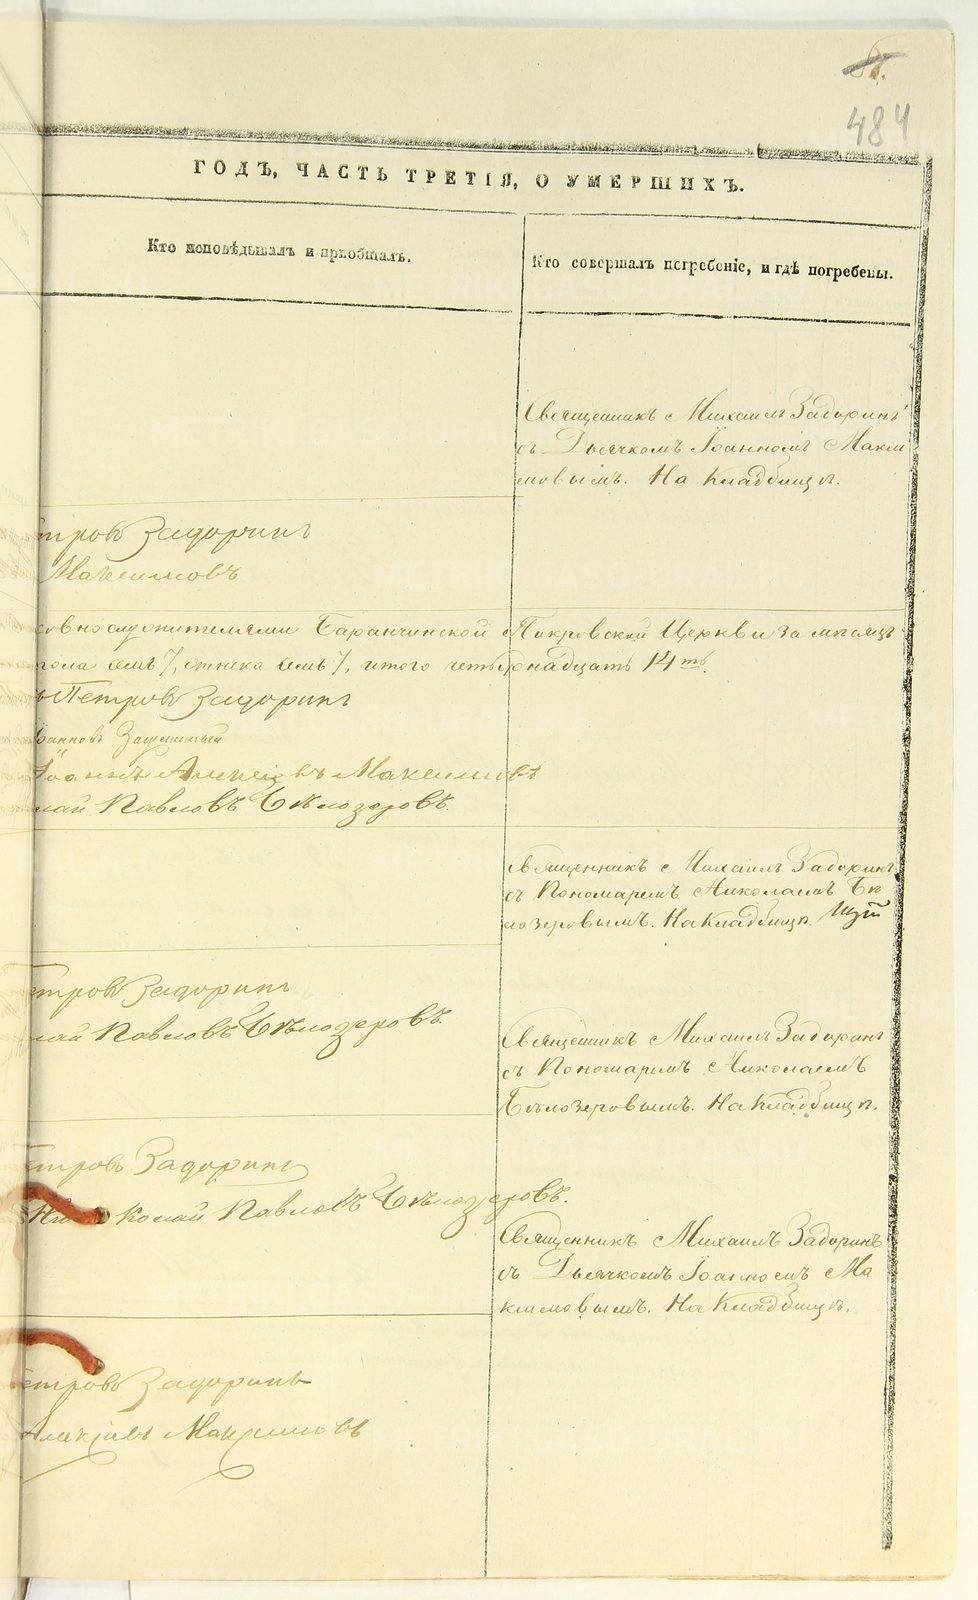 484
ГОДЪ, ЧАСТЬ ТРЕТІЯ, О УМЕРШИХЪ.
Кто исповѣдывалъ и пріобщалъ.
Кто совершалъ погребеніе, и гдѣ погребены.
Священникъ Михаилъ Задоринъ
съ Дьячкомъ Іоанномъ Макси
мовымъ. На Кладбищѣ.
тровъ Задоринъ
Максимовъ
ковнослужителями Баранчинской Покровской Церкви за мѣсяцъ
пола семь 7, женска семь 7, итого четырнадцать 14ть.
Петровъ Задоринъ
Іоанновъ
Іоаннъ Алексѣевъ Максимовъ
лай Павловъ Бѣлозеровъ
Священникъ Михаилъ Задоринъ
съ Пономаремъ Николаемъ Бѣ
лозеровымъ. На Кладбищѣ.
етровъ Задоринъ
лай Павловъ Бѣлозеровъ.
Священникъ Михаилъ Задоринъ
съ Пономаремъ Николаемъ
Бѣлозеровымъ. На Кладбищѣ.
Петровъ Задоринъ
Николай Павловъ Бѣлозеровъ.
Священникъ Михаилъ Задоринъ
съ Дьячкомъ Іоанномъ Ма
ксимовымъ. На Кладбищѣ.
етровъ Задоринъ
Алексѣевъ Максимовъ
METRIKI.GASO-URAL.RU